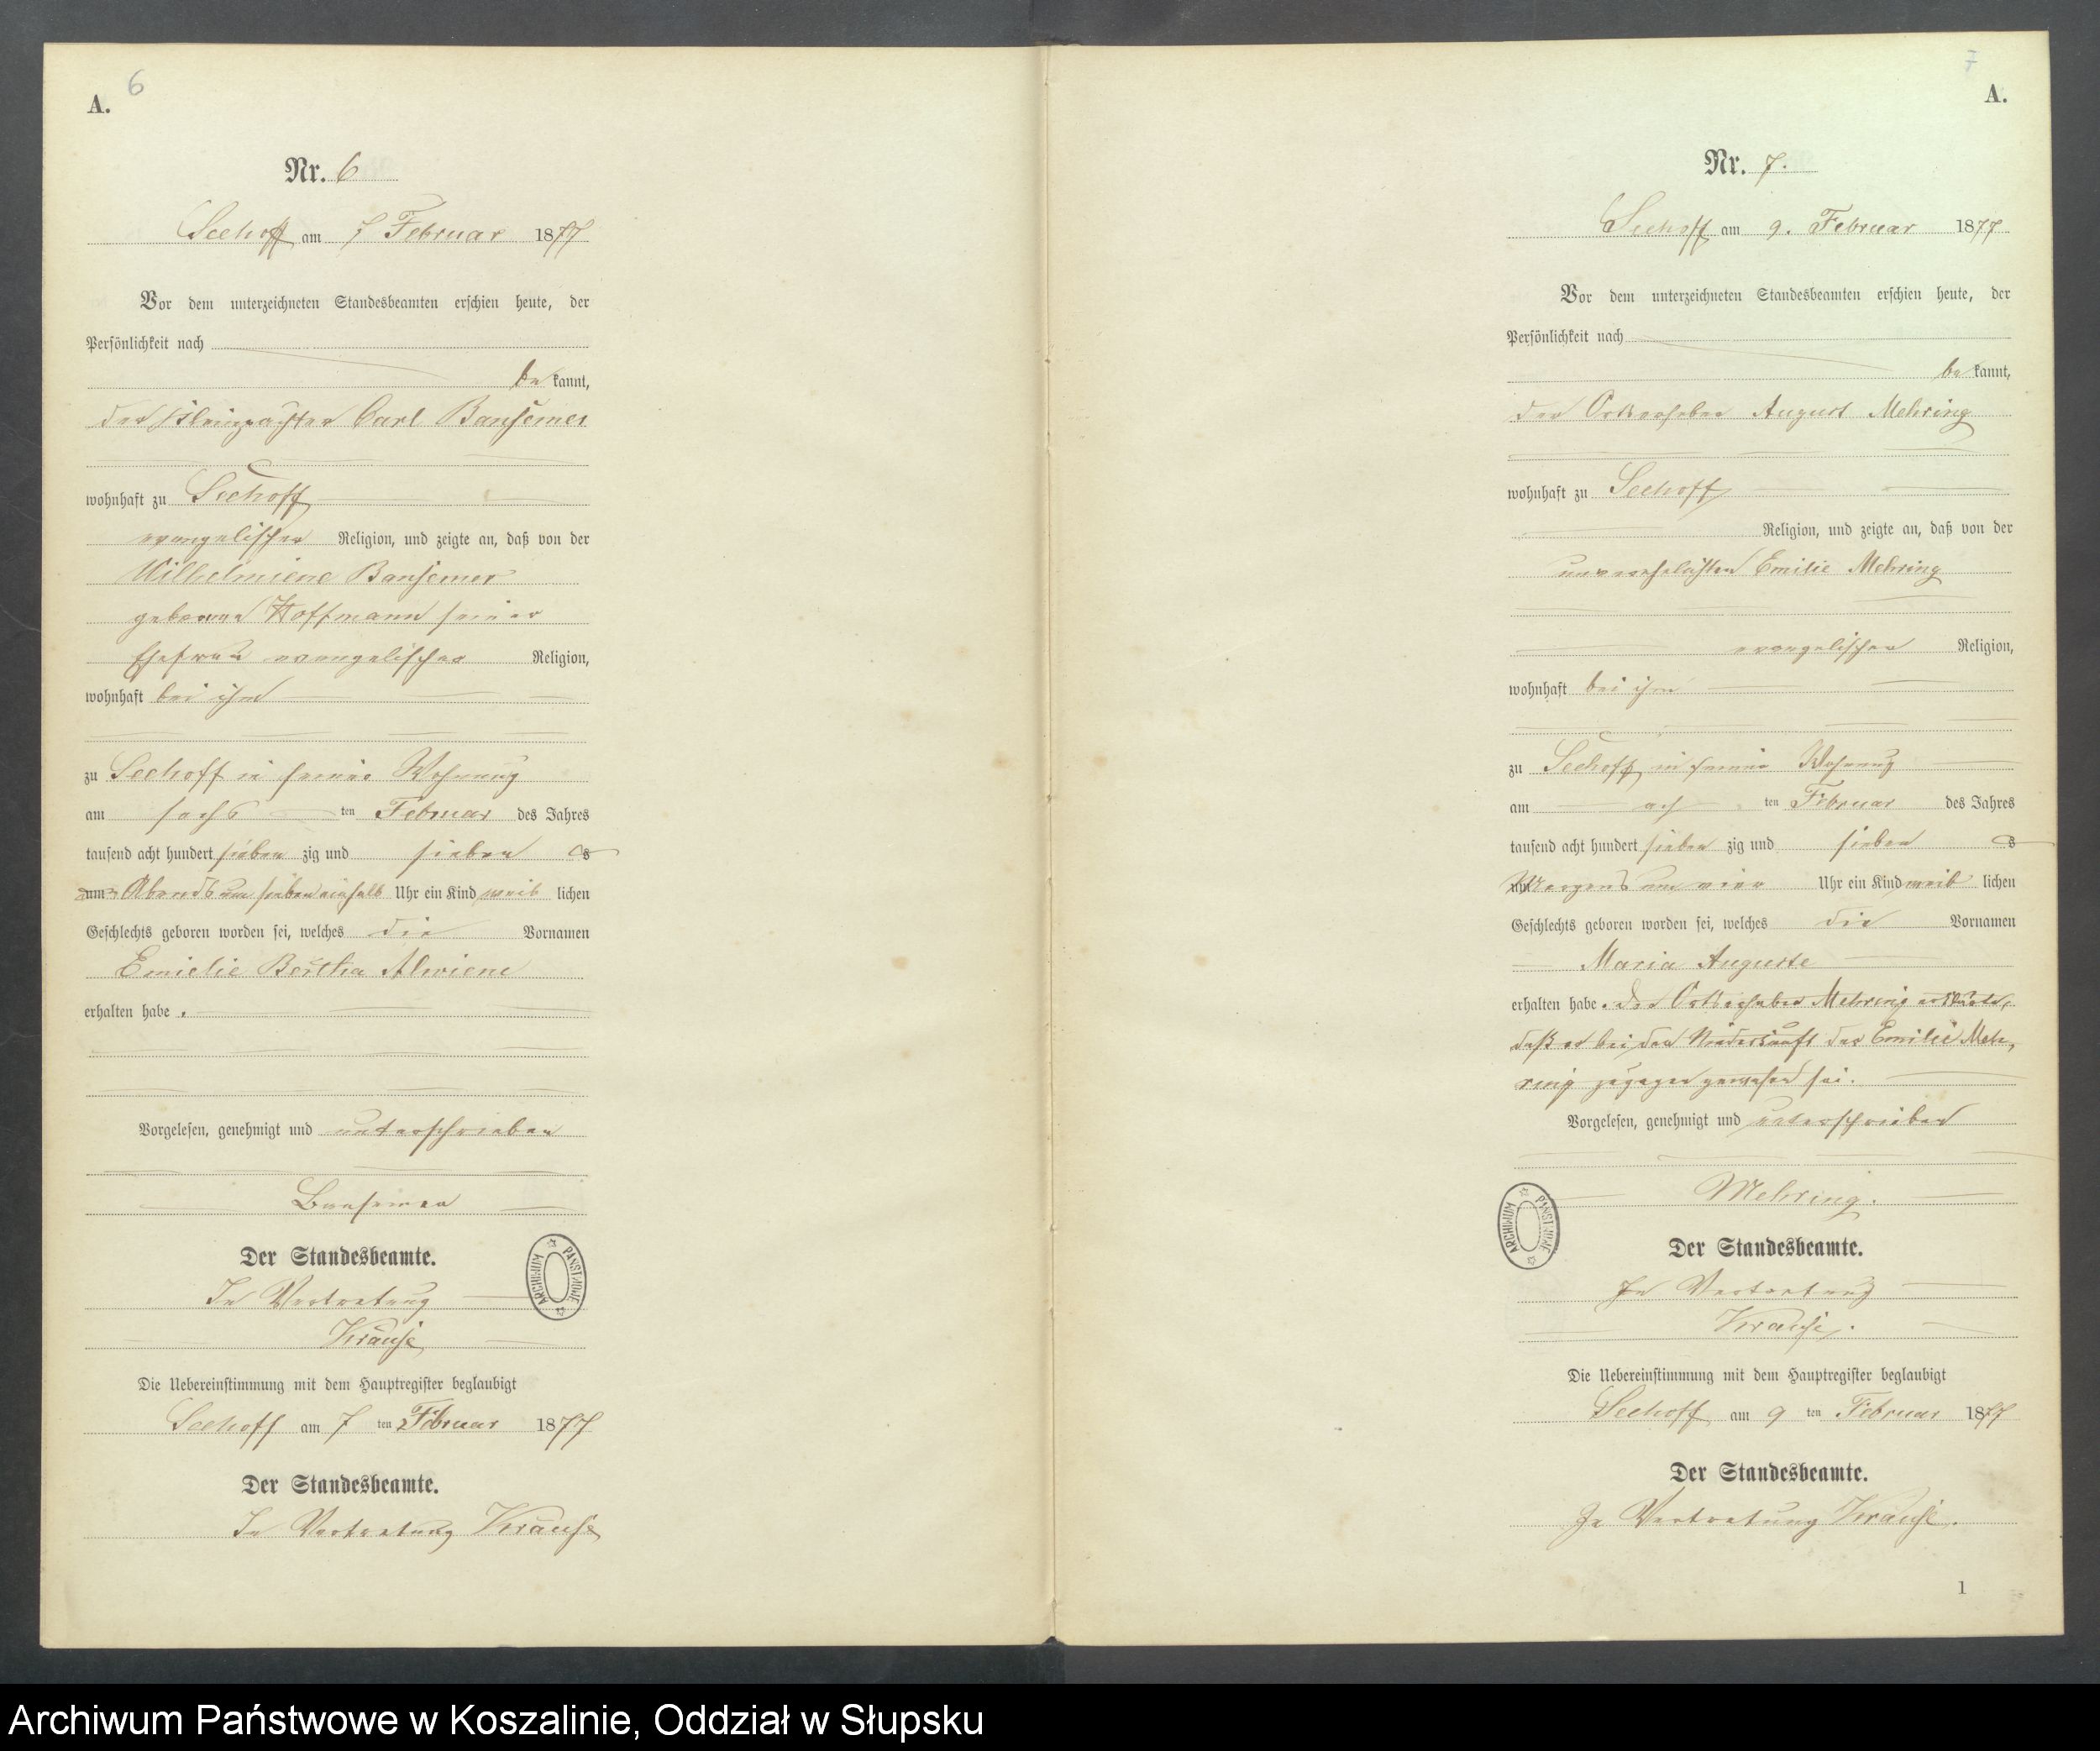 6
A.
Nr. 6
Seehoff am 7 Februar 1877
Vor dem unterzeichneten Standesbeamten erschien heute, der
Persönlichkeit nach
be kannt,
der Carl Bansemer
wohnhaft zu Seehoff
evangelischer Religion, und zeigte an, daß von der
Wilhelmiene Bansemer
geborene Hoffmann seiner
Ehefrau evangelischer Religion,
wohnhaft bei ihm
zu Seehoff in seiner Wohnung
am sechs ten Februar des Jahres
tausend acht hundert sieben zig und sieben s
um Abends um sieben einhalb Uhr ein Kind weib lichen
Geschlechts geboren worden sei, welches die Vornamen
Emielie Bertha Alwiene
erhalten habe.
Vorgelesen, genehmigt und unterschrieben
Bansemer
Der Standesbeamte.
In Vertretung
Krause
ARCHIWUM PAŃSTWOWE
Die Uebereinstimmung mit dem Hauptregister beglaubigt
Seehoff am 7 ten Februar 1877
Der Standesbeamte.
In Vertretung Krause
7
A.
Nr. 7.
Seehoff am 9. Februar 1877
Vor dem unterzeichneten Standesbeamten erschien heute, der
Persönlichkeit nach
be kannt,
der August Mehring
wohnhaft zu Seehoff
Religion, und zeigte an, daß von der
unverehelichten Emilie Mehring
evangelischer Religion,
wohnhaft bei ihm
zu Seehoff in seiner Wohnung
am ach ten Februar des Jahres
tausend acht hundert sieben zig und sieben s
um Morgens um vier Uhr ein Kind weib lichen
Geschlechts geboren worden sei, welches die Vornamen
Maria Auguste
erhalten habe. Der Mehring erklärte,
daß er bei der Niederkunft der Emilie Meh-
ring zugegen gewesen sei.
Vorgelesen, genehmigt und unterschrieben
Mehring.
ARCHIWUM PAŃSTWOWE
Der Standesbeamte.
In Vertretung
Krause.
Die Uebereinstimmung mit dem Hauptregister beglaubigt
Seehoff am 9 ten Februar 1877
Der Standesbeamte.
In Vertretung Krause.
1
Archiwum Państwowe w Koszalinie, Oddział w Słupsku